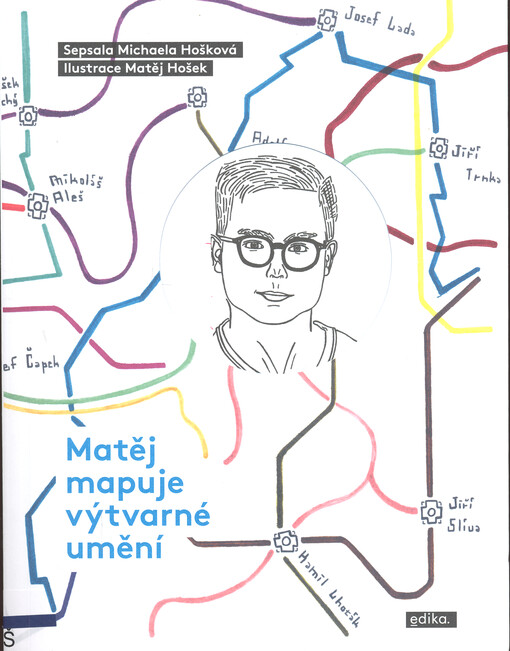 Sepsala Michaela Hošková
Ilustrace Matěj Hošek
Josef Lada
šek
chý
Adolf
Jiří
Trnka
Mikoláš
Aleš
ef Čapek
Matěj
mapuje
výtvarné
umění
Jiří
Slíva
Kamil Lhoták
edika.
Š